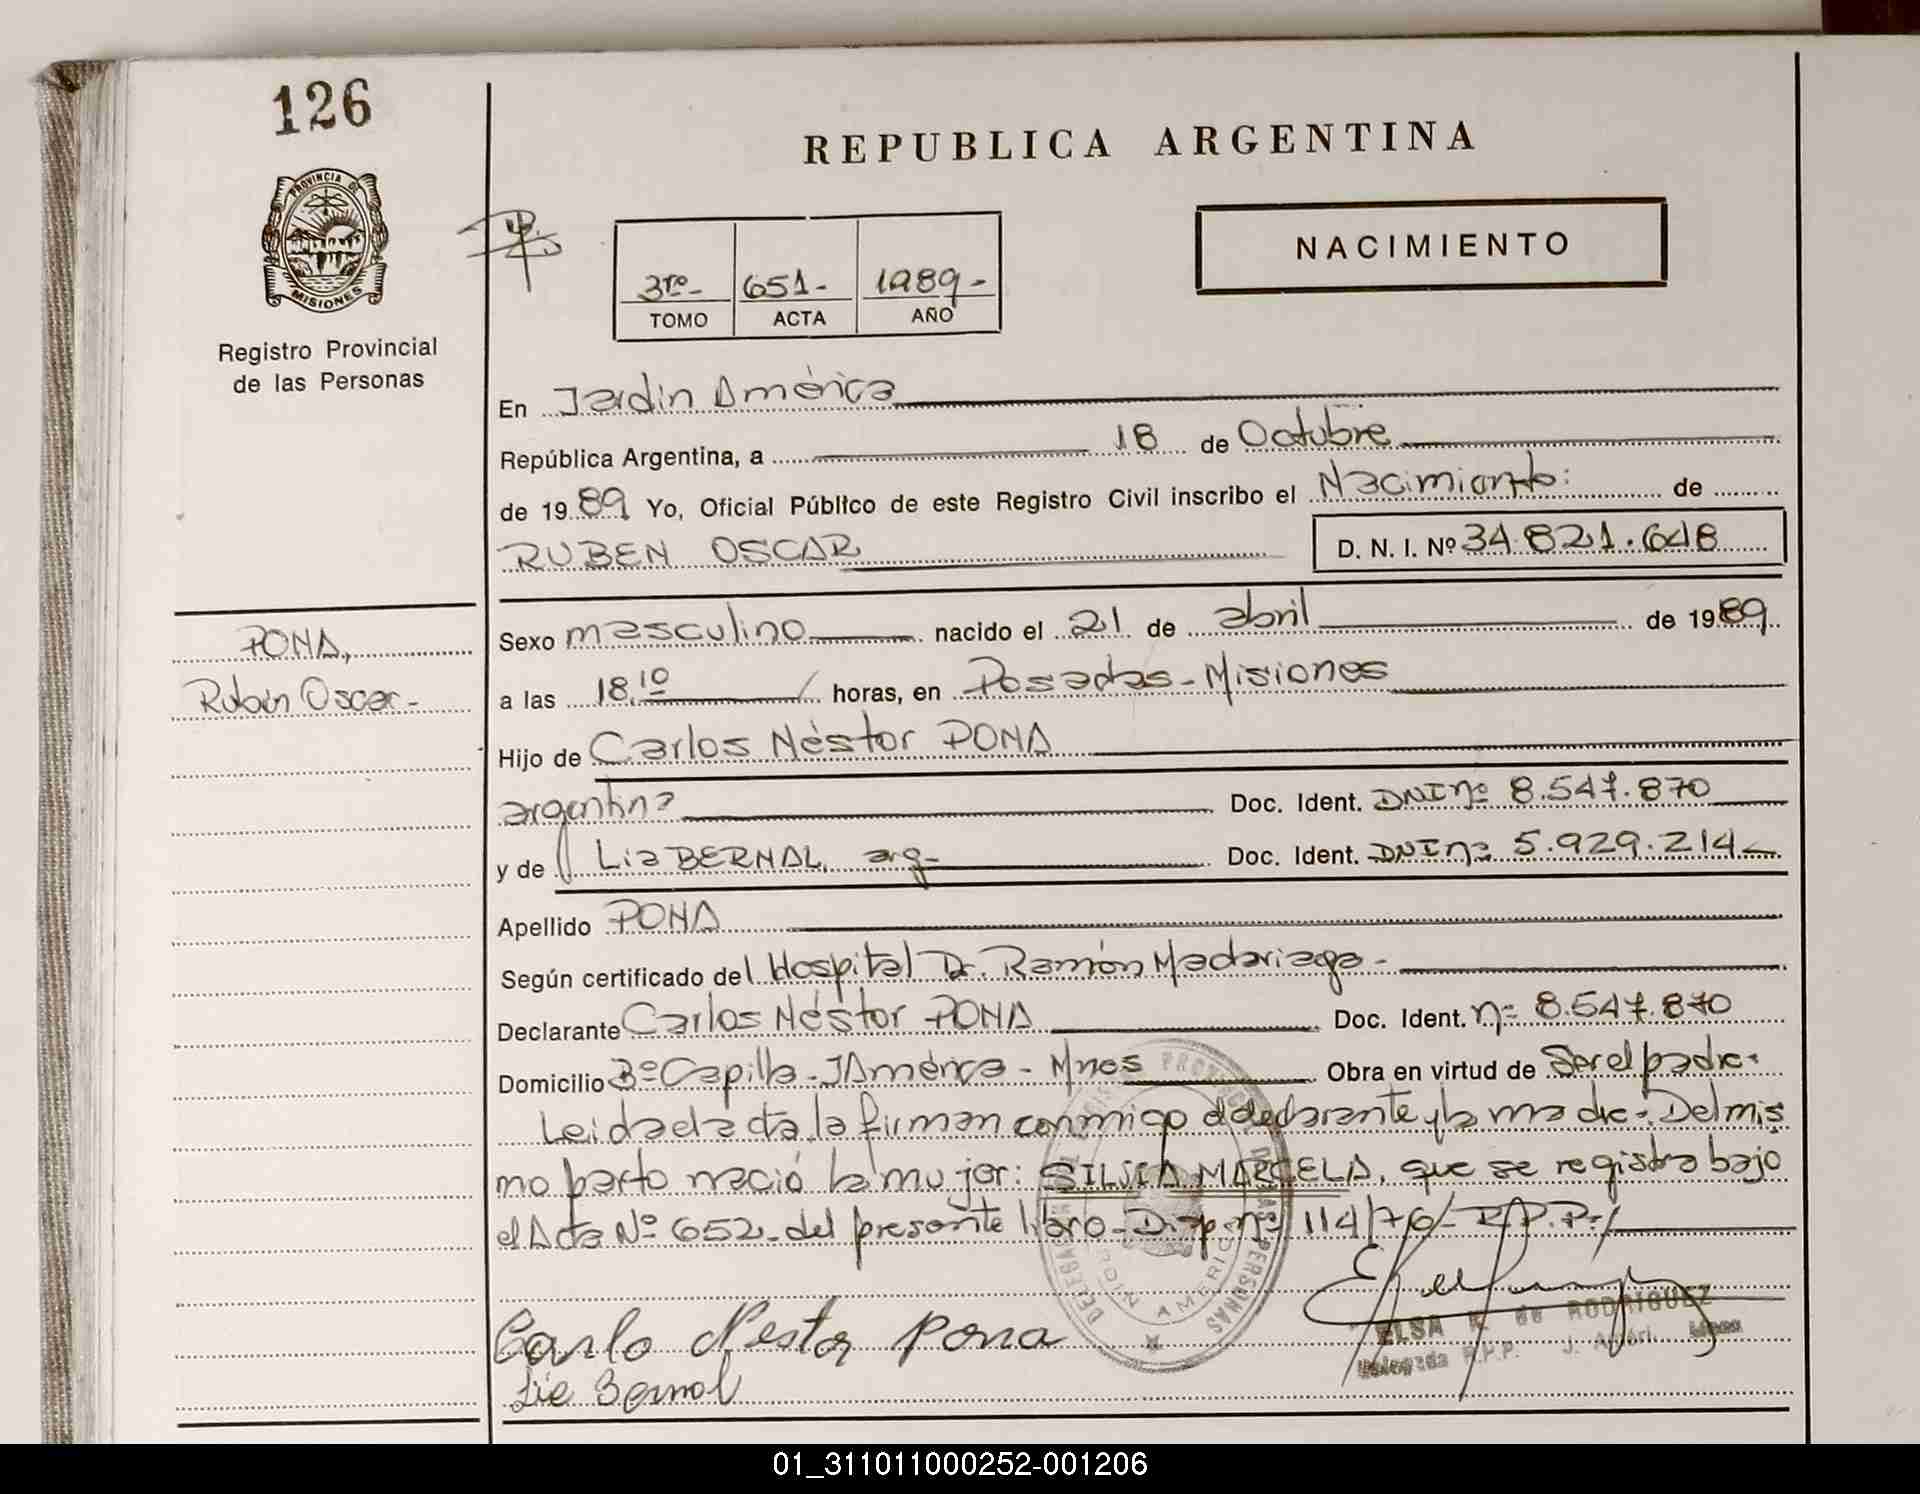 126
REPUBLICA ARGENTINA
PROVINCIA DE
MISIONES
Registro Provincial
de las Personas
3ro- 651- 1989-
TOMO ACTA AÑO
NACIMIENTO
En Jardin América
República Argentina, a 18 de Octubre
de 1989 Yo, Oficial Público de este Registro Civil inscribo el Nacimiento: de
RUBEN OSCAR D. N. I. Nº 34.821.648
PONA,
Rubén Oscar-
Sexo masculino nacido el 21 de abril de 1989
a las 18,10 horas, en Posadas-Misiones
Hijo de Carlos Néstor PONA
argentina Doc. Ident. DNI nº 8.547.870
y de Lia BERNAL, arg- Doc. Ident. DNI nº 5.929.214
Apellido PONA
Según certificado del Hospital Dr. Ramón Madariaga-
Declarante Carlos Néstor PONA Doc. Ident. nº 8.547.870
Domicilio Bº Capilla-JAmérica-Mnes Obra en virtud de Ser el padre-
Leida el acta, la firman conmigo el declarante y la madre-Del mis
mo parto nació la mujer: SILVIA MARCELA, que se registra bajo
el Acta Nº 652-del presente libro-Disp. nº 114/76-R.P.P./
Carlo Nestor Pona
Lia Bernal
ELSA de RODRIGUEZ
Delegada R.P.P. J. Améri. Mnes
01_311011000252-001206